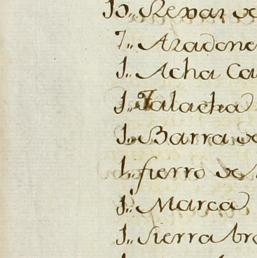 10,, Rexar de
7,, Azadone
1,, Acha Ca
1,, Falacha
1,, Barra de
1,, fierro de
1,, Marca,
1,, Sierra bra